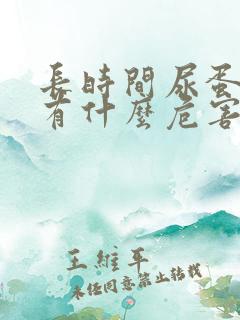 長時間尿蛋
有什麼危害
王維平
未經同意禁止轉載